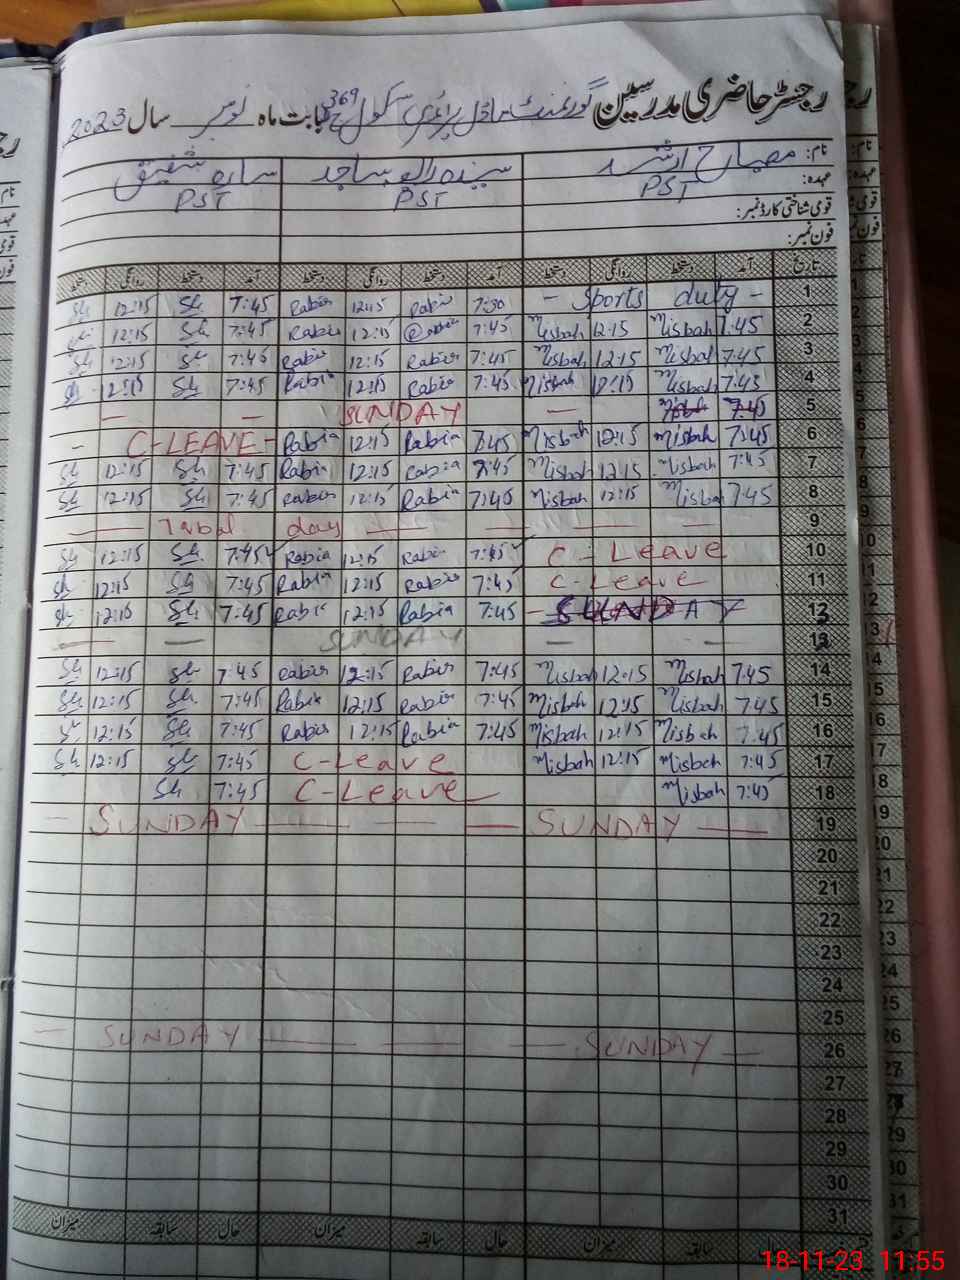 رجسٹر حاضری مدرسین گورنمنٹ ماڈل پرائمری سکول 369 بابت ماہ نومبر سال 2023
نام: مصباح ارشد سیدہ رابعہ ساجد سارہ شفیق
عہدہ: PST PST PST
قومی شناختی کارڈ نمبر:
فون نمبر:
تاریخ آمد دستخط روانگی دستخط آمد دستخط روانگی دستخط آمد دستخط روانگی دستخط
Sh 12:15 Sh 7:45 Rabia 12:15 Rabia 7:30 - Sports duty - 1
12:15 Sh 7:45 Rabia 12:15 Rabia 7:45 Misbah 12:15 Misbah 7:45 2
Sh 12:15 Sh 7:45 Rabia 12:15 Rabia 7:45 Misbah 12:15 Misbah 7:45 3
Sh 12:15 Sh 7:45 Rabia 12:15 Rabia 7:45 Misbah 12:15 Misbah 7:45 4
— — SUNDAY — 7:45 5
- C-LEAVE - Rabia 12:15 Rabia 7:45 Misbah 12:15 Misbah 7:45 6
Sh 12:15 Sh 7:45 Rabia 12:15 Rabia 7:45 Misbah 12:15 Misbah 7:45 7
Sh 12:15 Sh 7:45 Rabia 12:15 Rabia 7:45 Misbah 12:15 Misbah 7:45 8
— Iqbal day — — — — 9
Sh 12:15 Sh 7:45 Rabia 12:15 Rabia 7:45 C-Leave 10
Sh 12:15 Sh 7:45 Rabia 12:15 Rabia 7:45 C-Leave 11
Sh 12:15 Sh 7:45 Rabia 12:15 Rabia 7:45 - SUNDAY 12
— — SUNDAY — - 13
Sh 12:15 Sh 7:45 Rabia 12:15 Rabia 7:45 Misbah 12:15 Misbah 7:45 14
Sh 12:15 Sh 7:45 Rabia 12:15 Rabia 7:45 Misbah 12:15 Misbah 7:45 15
Sh 12:15 Sh 7:45 Rabia 12:15 Rabia 7:45 Misbah 12:15 Misbah 7:45 16
Sh 12:15 Sh 7:45 C-Leave Misbah 12:15 Misbah 7:45 17
Sh 7:45 C-Leave Misbah 7:45 18
— SUNDAY — — — SUNDAY — 19
20
21
22
23
24
25
— SUNDAY — — — SUNDAY — 26
27
28
29
30
31
حال سابقہ میزان حال سابقہ میزان حال سابقہ میزان
18-11-23 11:55